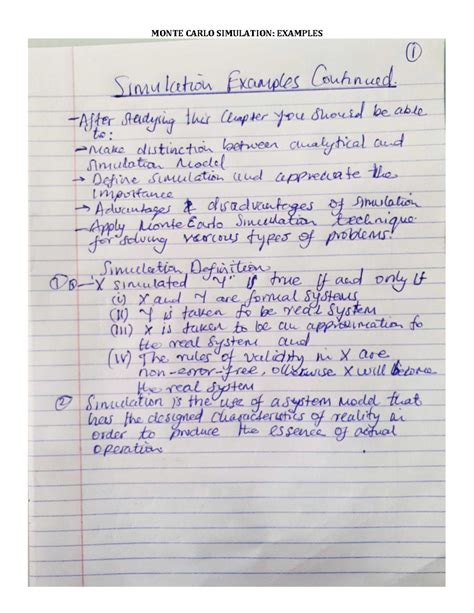 MONTE CARLO SIMULATION: EXAMPLES
①
Simulation Examples Continued.
-After studying this Chapter you should be able
to:
→ make distinction between analytical and
Simulation Model
→ Define simulation and appreciate the
Importance
→ Advantages & disadvantages of simulation
-Apply Monte Carlo Simulation technique
for solving various types of problems.
Simulation Definition
① "X simulated "Y" if true If and only If
(i) X and Y are formal systems
(II) Y is taken to be real system
(III) X is taken to be an approximation to
the real system and
(IV) The rules of validity in X are
non-error-free, otherwise X will become
the real system
② Simulation is the use of a system model that
has the designed characteristics of reality in
order to produce the essence of actual
operation.